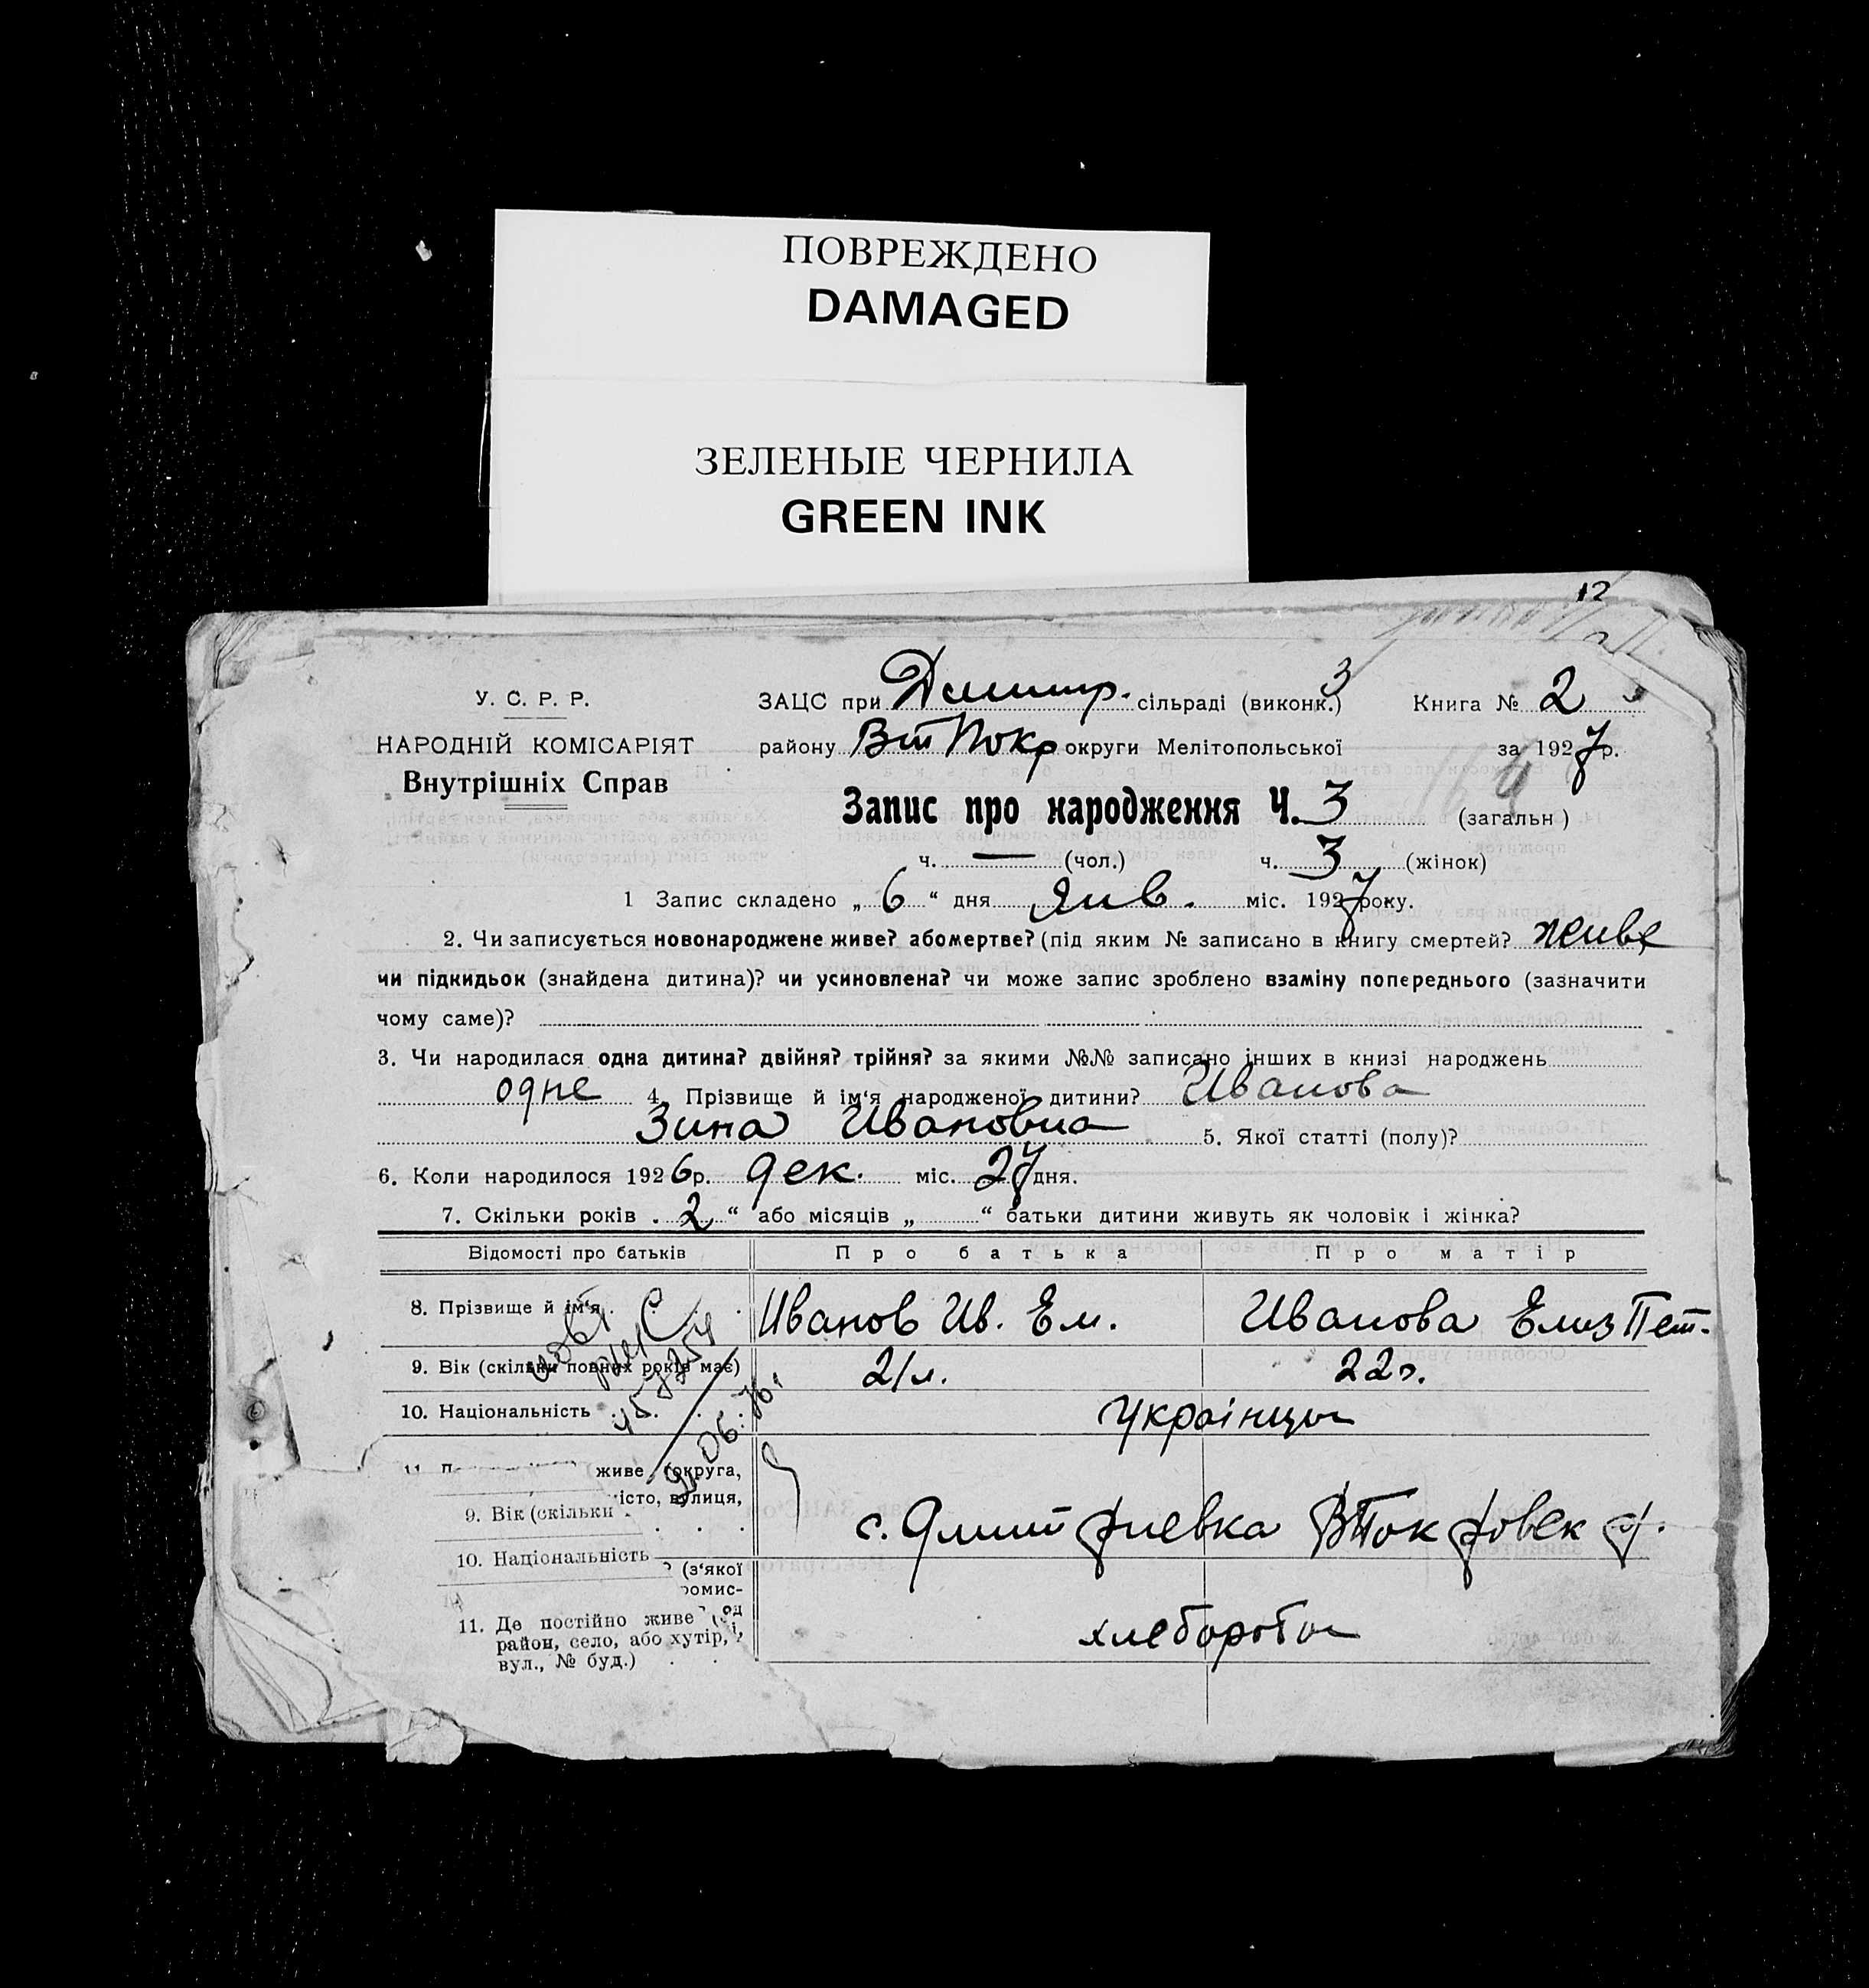 ПОВРЕЖДЕНО
DAMAGED
ЗЕЛЕНЫЕ ЧЕРНИЛА
GREEN INK
12
У. С. Р. Р.
НАРОДНІЙ КОМІСАРІЯТ
Внутрішніх Справ
ЗАЦС при Дмитр. сільраді (виконк.) 3 Книга № 2
району Вт Покр округи Мелітопольської за 1927р.
Запис про народження Ч. 3 (загальн)
ч. — (чол.) ч. 3 (жінок)
1 Запис складено „ 6 “ дня Янв. міс. 1927 року.
2. Чи записується новонароджене живе? або мертве? (під яким № записано в книгу смертей? живе
чи підкидьок (знайдена дитина)? чи усиновлена? чи може запис зроблено взаміну попереднього (зазначити
чому саме)?
3. Чи народилася одна дитина? двійня? трійня? за якими №№ записано інших в книзі народжень
одне 4. Прізвище й ім‘я народженої дитини? Иванова
Зина Ивановна 5. Якої статті (полу)?
6. Коли народилося 1926р. дек. міс. 27 дня.
7. Скільки років „ 2 “ або місяців „ “ батьки дитини живуть як чоловік і жінка?
Відомості про батьків Про батька Про матір
8. Прізвище й ім‘я Иванов Ив. Ем. Иванова Елиз Пет.
9. Вік (скільки повних років має) 21л. 22г.
10. Національність українцы
живе (округа,
місто, вулиця,
9. Вік (скільки
с. Дмитриевка ВПокровск р.
10. Національність
? (з‘якої
ромис-
11. Де постійно живе
район, село, або хутір,
вул., № буд.)
хлеборобы